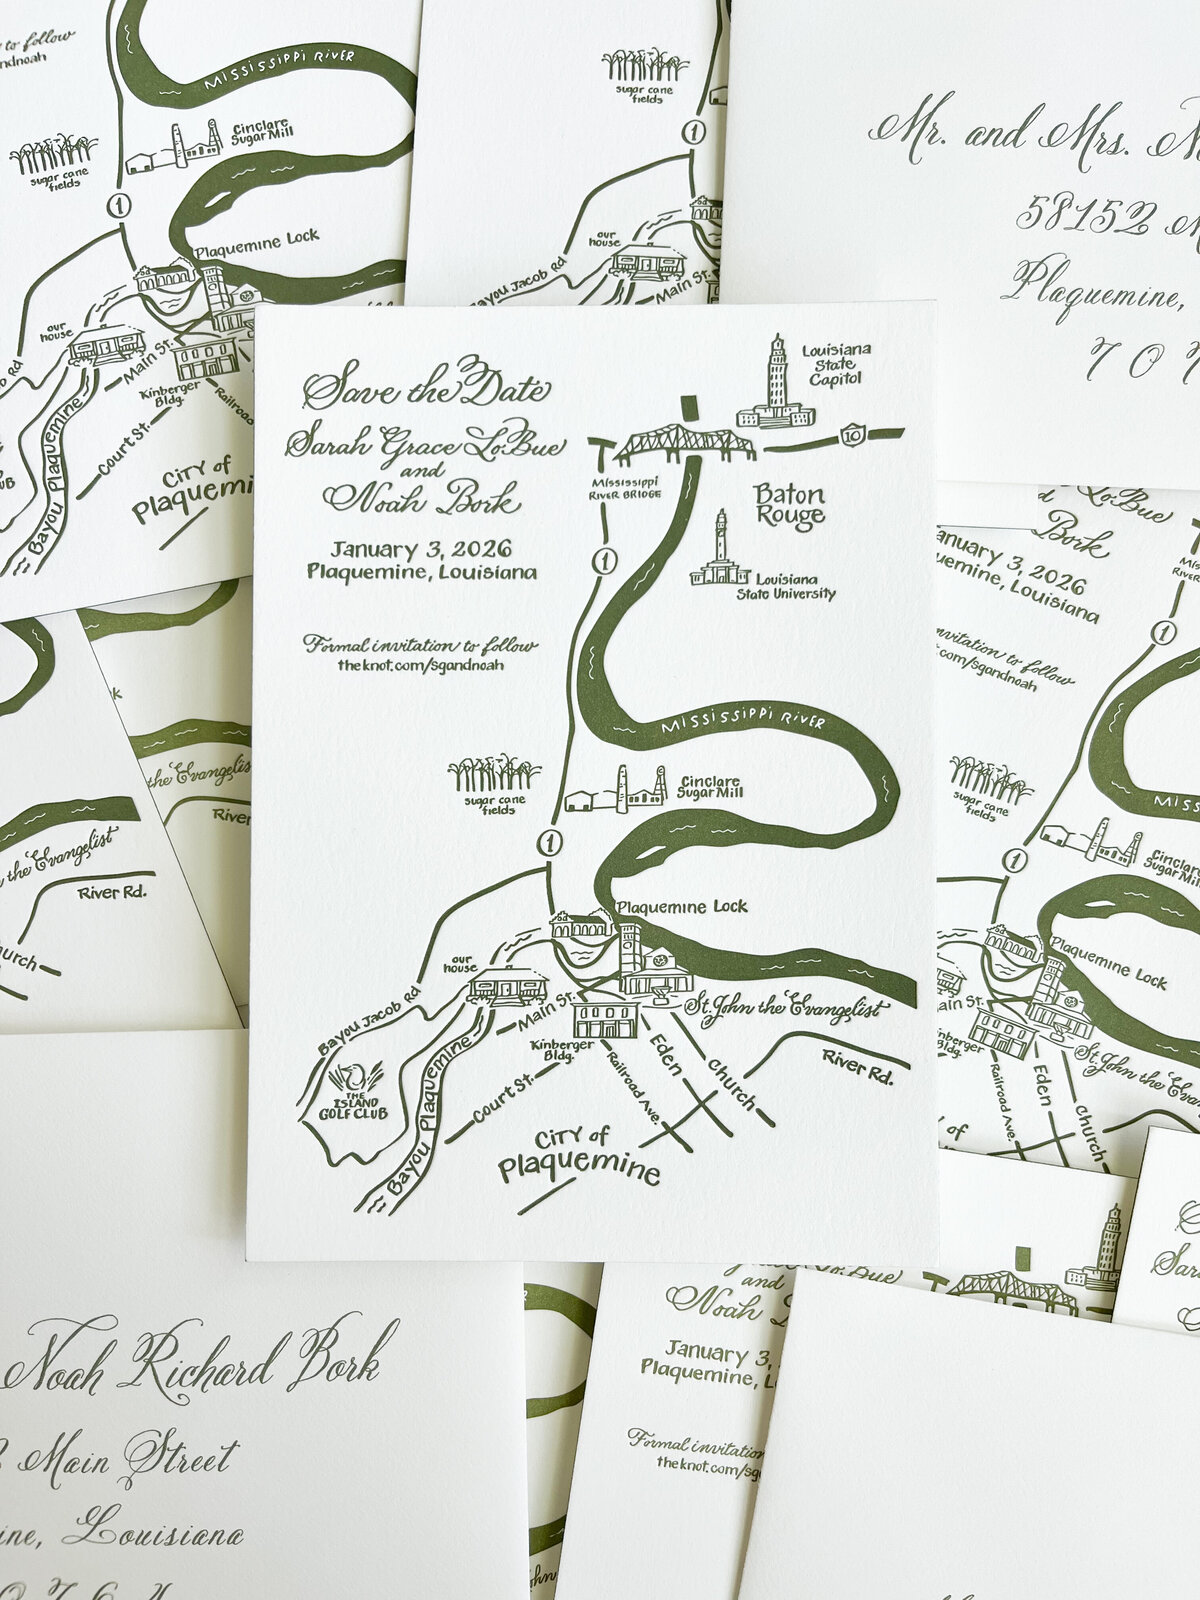 to follow
ndnoah
Mississippi River
Cinclare
Sugar Mill
sugar cane
fields
1
Plaquemine Lock
our
house
Main St.
Kinberger
Bldg.
Railroad
Court St.
Bayou Plaquemine
City of
Plaquemi
sugar cane
fields
1
our
house
Bayou Jacob Rd
Main St.
Mr. and Mrs.
58152
Plaquemine,
7 0
Save the Date
Sarah Grace LoBue
and
Noah Bork
January 3, 2026
Plaquemine, Louisiana
Formal invitation to follow
theknot.com/sgandnoah
Louisiana
State
Capitol
10
Mississippi
River Bridge
Baton
Rouge
1
Louisiana
State University
Mississippi River
sugar cane
fields
Cinclare
Sugar Mill
1
Plaquemine Lock
our
house
Bayou Jacob Rd
Main St.
St. John the Evangelist
Kinberger
Bldg.
Railroad Ave.
Eden
Church
River Rd.
The
Island
Golf Club
Bayou Plaquemine
Court St.
City of
Plaquemine
the Evangelist
River
the Evangelist
River Rd.
hurch
LoBue
Bork
anuary 3, 2026
uemine, Louisiana
nvitation to follow
t.com/sgandnoah
1
Miss
sugar cane
fields
Cinclare
Sugar Mill
1
Plaquemine Lock
ain St.
nberger
Bldg.
Railroad Ave.
Eden
Church
St. John the Eva
of
Noah Richard Bork
Main Street
ine, Louisiana
race LoBue
and
Noah
January 3,
Plaquemine, L
Formal invitation
theknot.com/sg
Sar
John